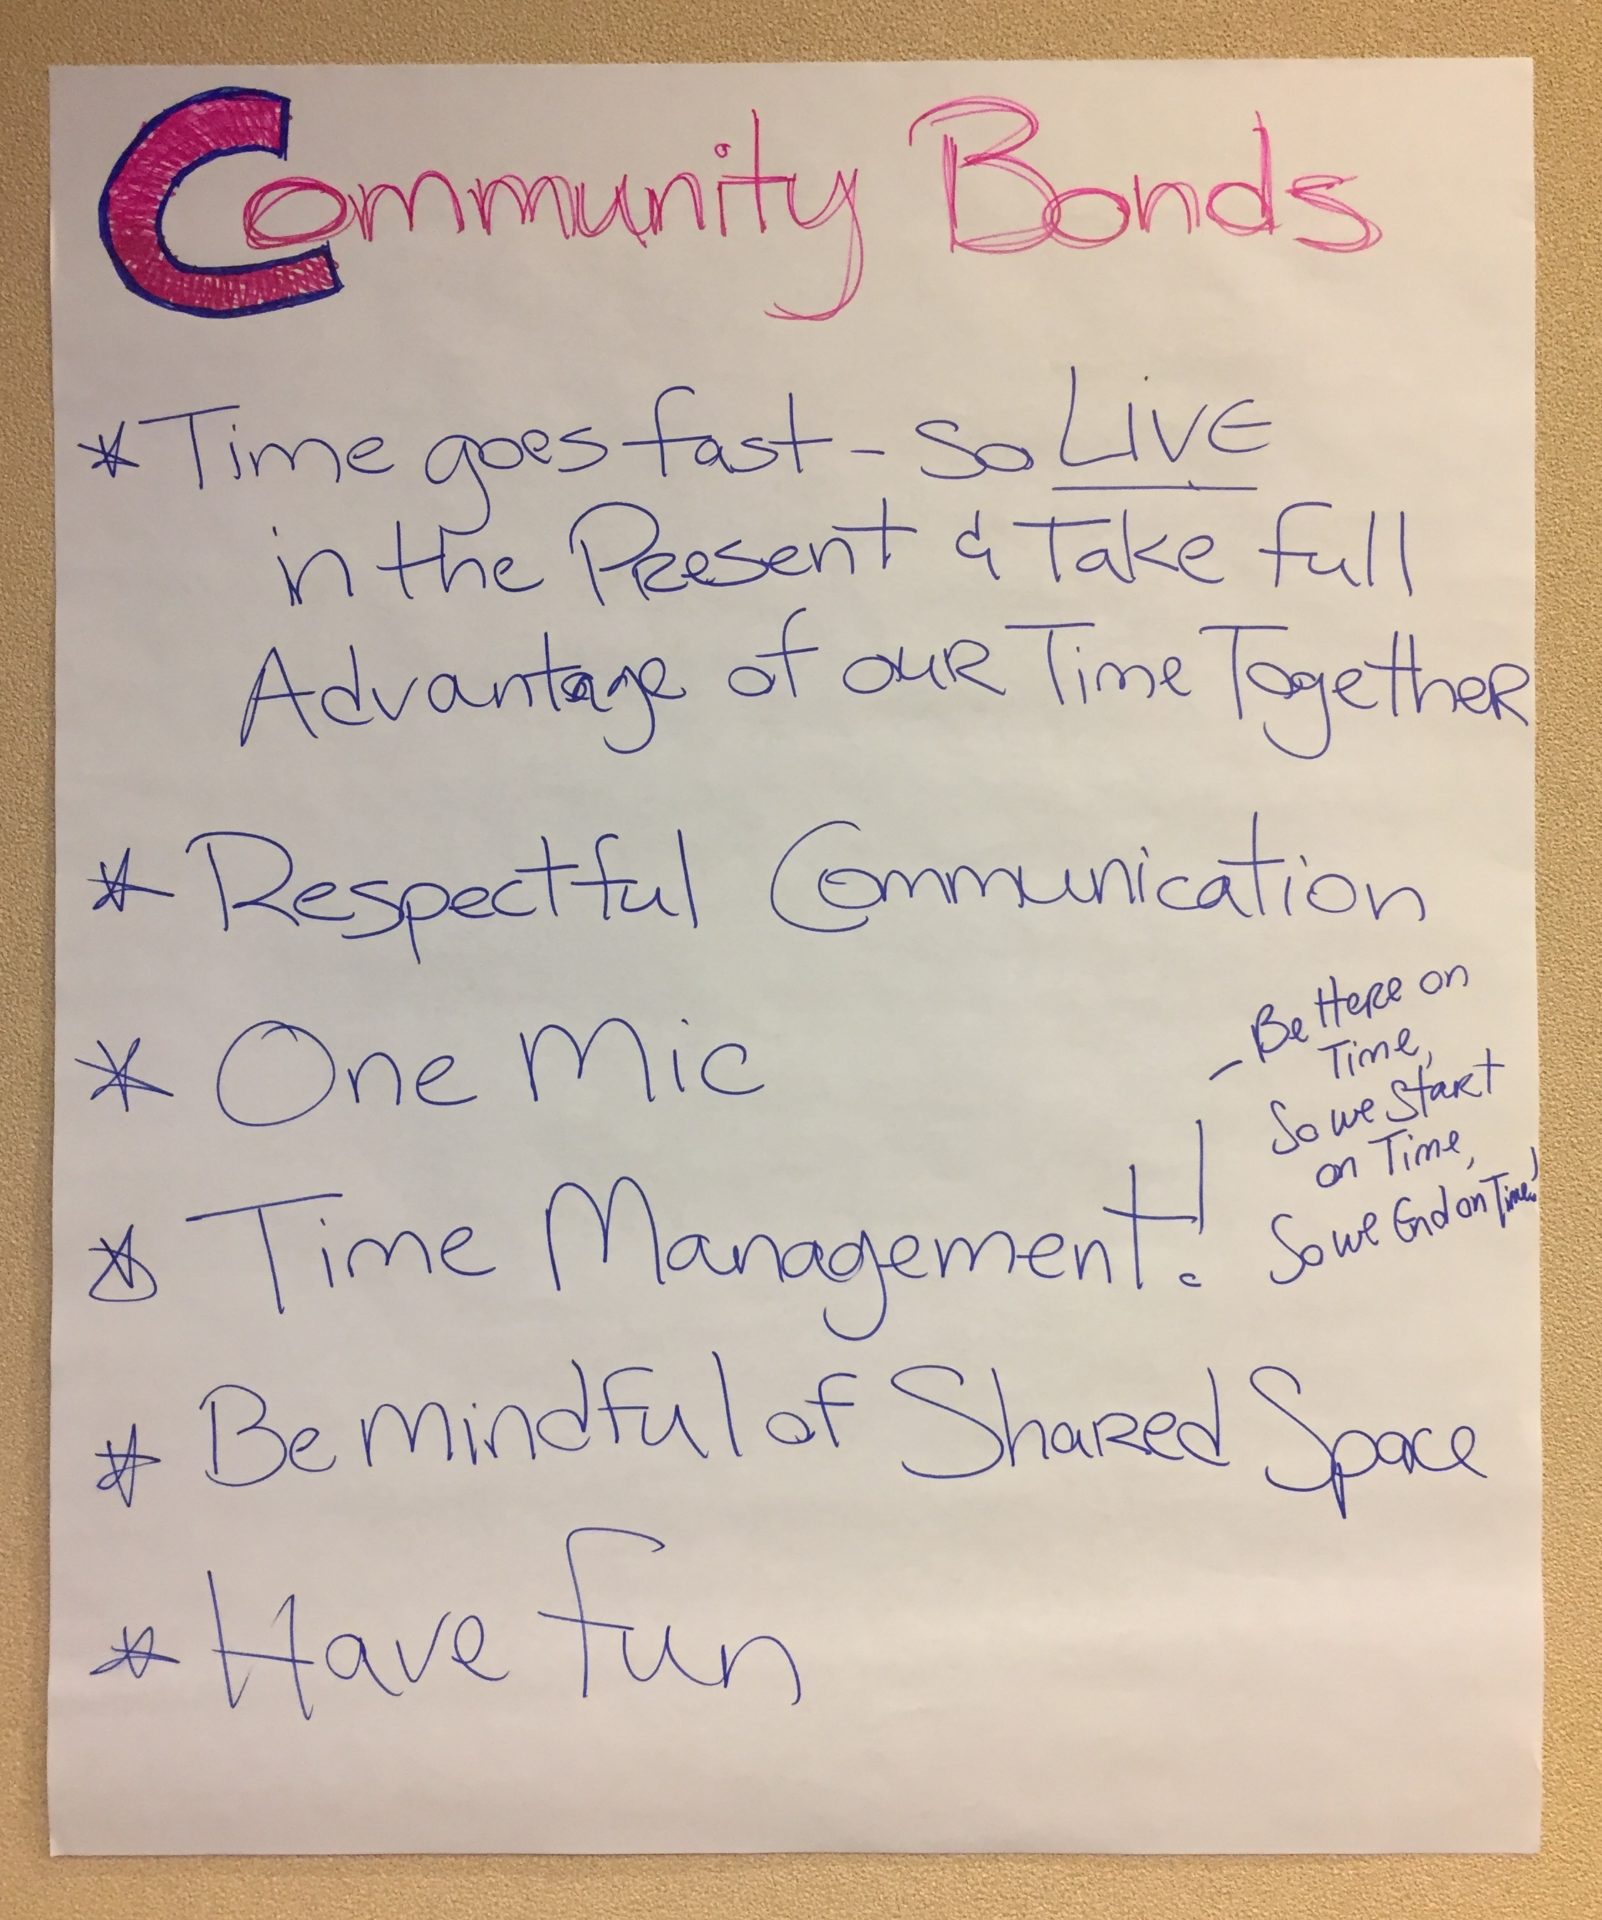 Community Bonds
* Time goes fast - So LIVE
in the Present & Take full
Advantage of our Time Together
* Respectful Communication
* One Mic
* Time Management!
- Be Here on
Time,
So we Start
on Time,
So we End on Time!
* Be mindful of Shared Space
* Have fun